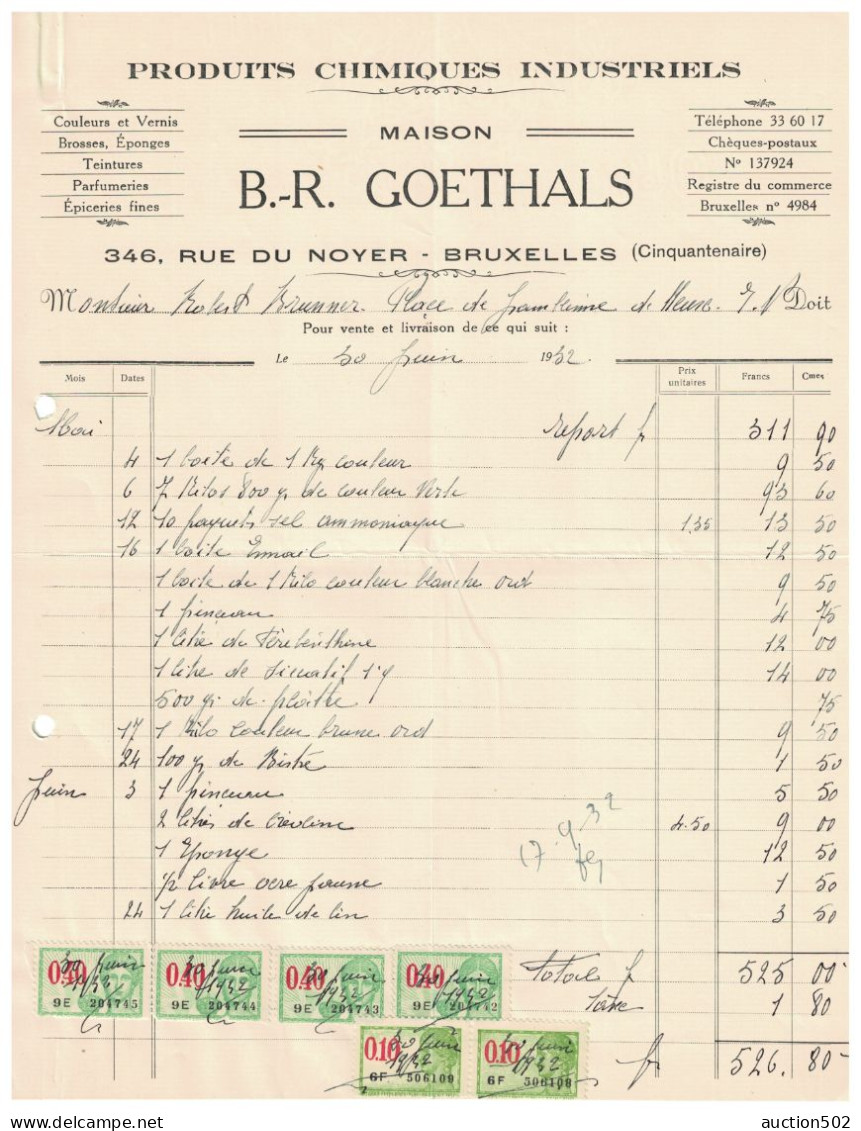 PRODUITS CHIMIQUES INDUSTRIELS
Couleurs et Vernis
Brosses, Éponges
Teintures
Parfumeries
Épiceries fines
MAISON
B.-R. GOETHALS
Téléphone 33 60 17
Chèques-postaux
No 137924
Registre du commerce
Bruxelles no 4984
346, RUE DU NOYER - BRUXELLES (Cinquantenaire)
Monsieur Robert Brunner. Place de Jamblinne de Meux. E/V Doit
Pour vente et livraison de ce qui suit :
Le 30 Juin 1932.
Mois Dates Prix unitaires Francs Cmes
Mai report fr 311 90
4 1 boite de 1 Kg couleur 9 50
6 7 Kilos 800 gr de couleur Verte 93 60
12 10 paquets sel ammoniaque 1.35 13 50
16 1 boite Email 12 50
1 boite de 1 Kilo couleur blanche ord 9 50
1 pinceau 4 75
1 litre de Térébenthine 12 00
1 litre de Siccatif 14 00
500 gr. de plâtre 75
17 1 Kilo couleur brune ord 9 50
24 100 gr de Bistre 1 50
Juin 3 1 pinceau 5 50
2 litres de Créoline 4.50 9 00
1 Eponge 12 50
1/2 livre ocre jaune 1 50
24 1 litre huile de lin 3 50
17.9.32
Total fr 525 00
Taxe 1 80
fr 526. 80
0.40 30 Juin 1932 9E 204745
0.40 30 Juin 1932 9E 204744
0.40 30 Juin 1932 9E 204743
0.40 30 Juin 1932 9E 204742
0.10 30 Juin 1932 6F 506109
7
0.10 30 Juin 1932 6F 506108
auction502